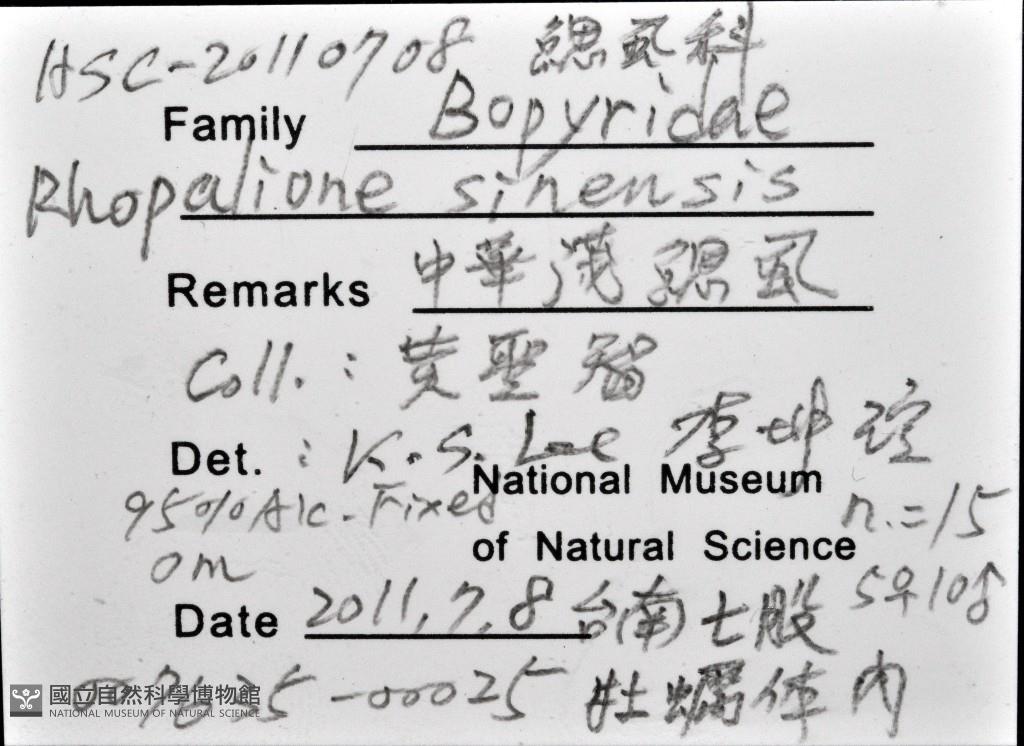 HSC-20110708 鰓虱科
Family Bopyridae
Rhopalione sinensis
Remarks 中華 鰓虱
Coll.: 黃聖
Det. : K.S. Lee 李坤瑄
National Museum
95% Alc. Fixed n.=15
of Natural Science
0m
Date 2011.7.8 台(南)七股 5♀10♂
-00025 牡蠣体内
國立自然科學博物館
NATIONAL MUSEUM OF NATURAL SCIENCE